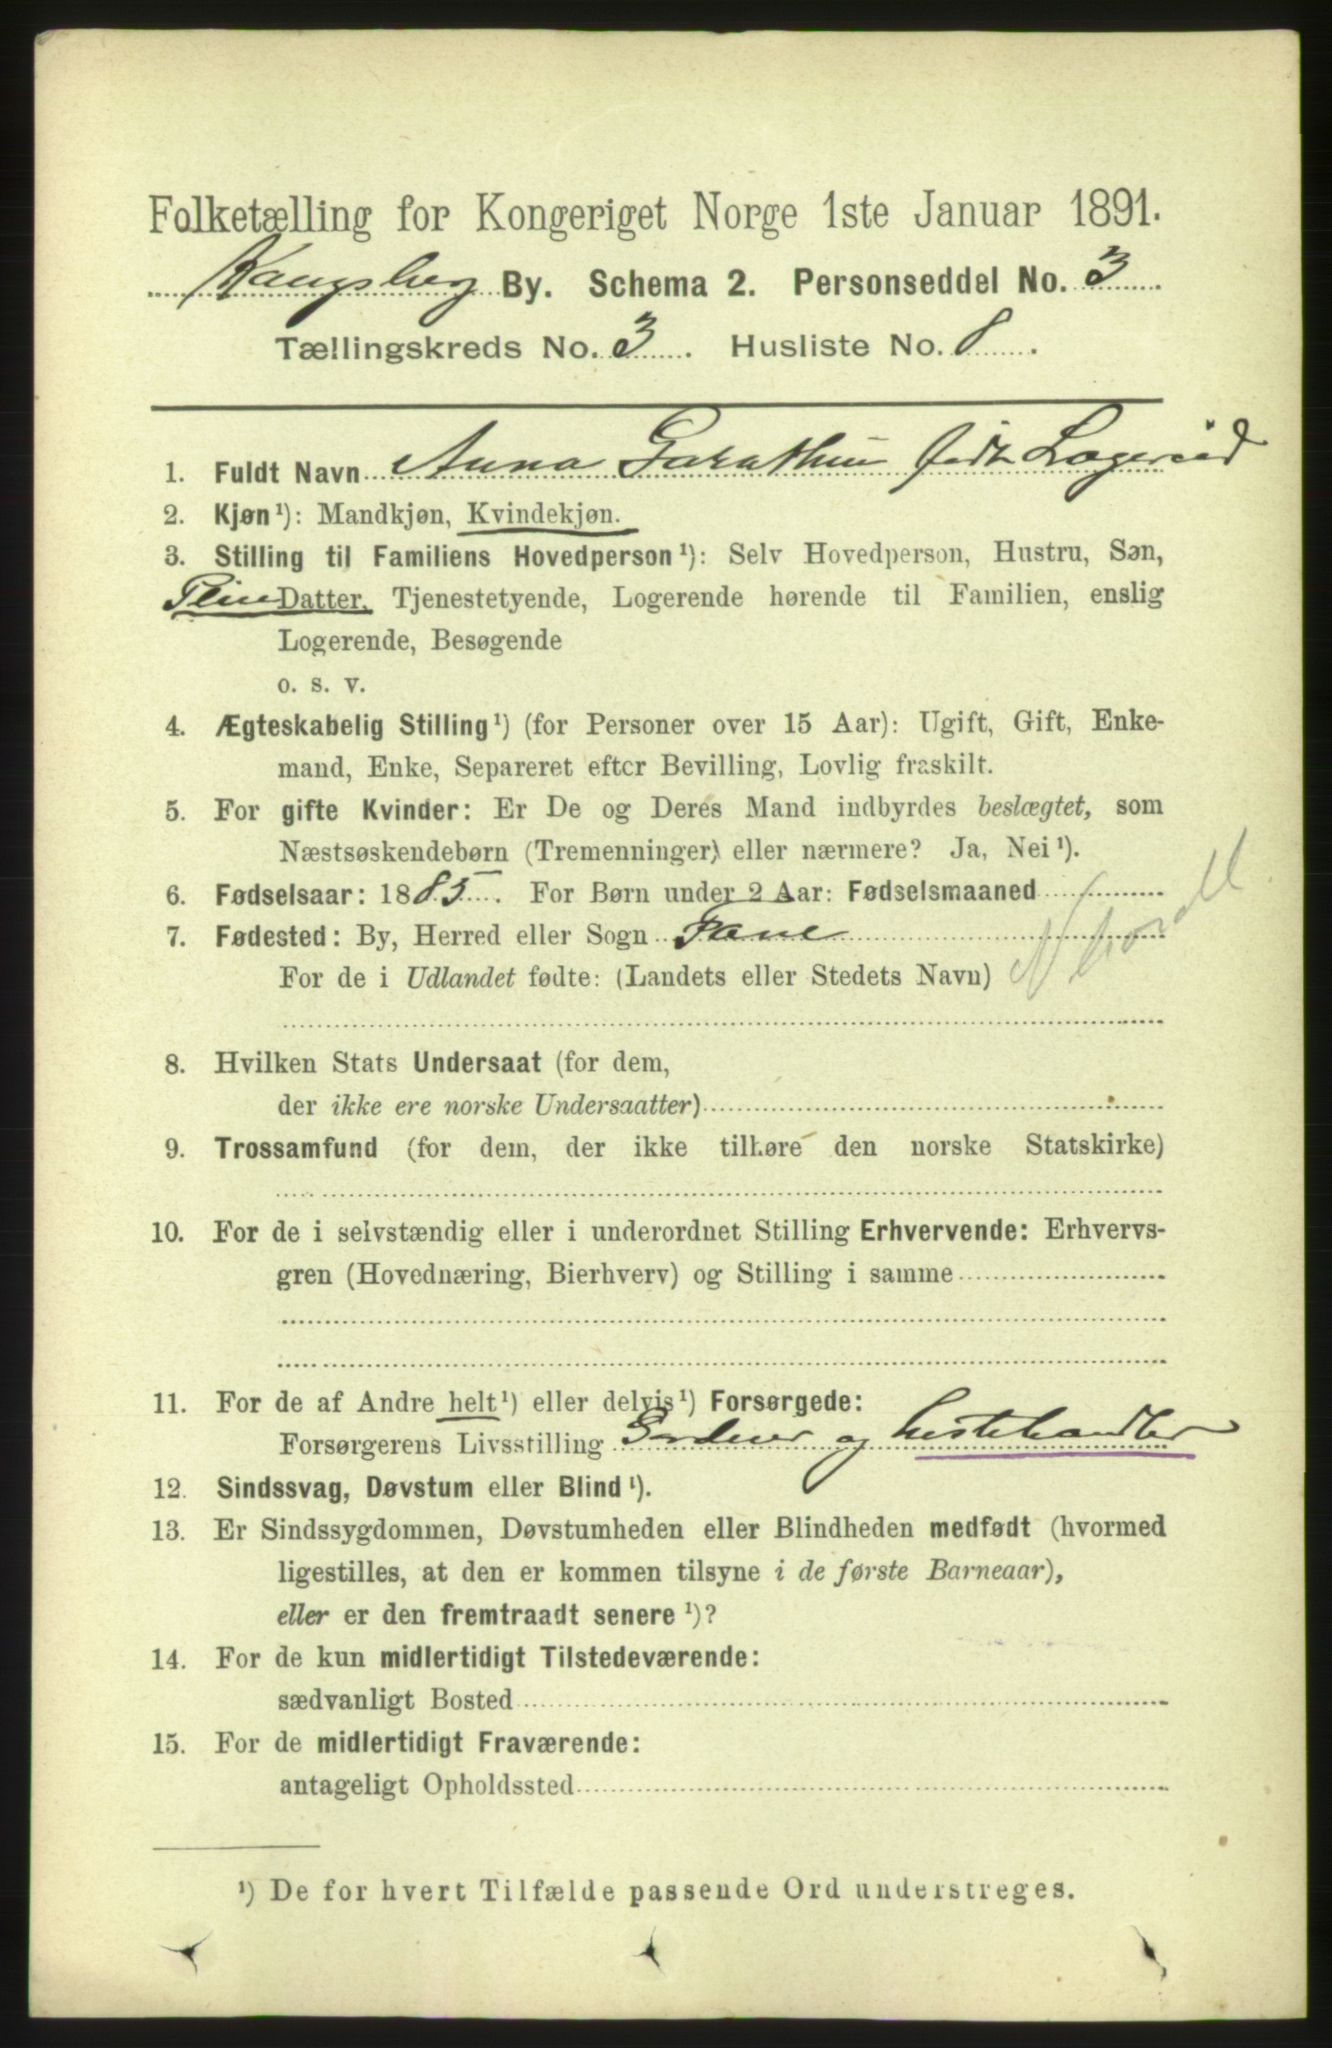 Folketælling for Kongeriget Norge 1ste Januar 1891.
Kongsberg By. Schema 2. Personseddel No. 3
Tællingskreds No. 3. Husliste No. 8.
1. Fuldt Navn Anna født
2. Kjøn¹): Mandkjøn, Kvindekjøn.
3. Stilling til Familiens Hovedperson¹): Selv Hovedperson, Hustru, Søn,
Datter, Tjenestetyende, Logerende hørende til Familien, enslig
Logerende, Besøgende
o. s. v.
4. Ægteskabelig Stilling¹) (for Personer over 15 Aar): Ugift, Gift, Enke-
mand, Enke, Separeret efter Bevilling, Lovlig fraskilt.
5. For gifte Kvinder: Er De og Deres Mand indbyrdes beslægtet, som
Næstsøskendebørn (Tremenninger) eller nærmere? Ja, Nei¹).
6. Fødselsaar: 1885. For Børn under 2 Aar: Fødselsmaaned
7. Fødested: By, Herred eller Sogn
For de i Udlandet fødte: (Landets eller Stedets Navn)
8. Hvilken Stats Undersaat (for dem,
der ikke ere norske Undersaatter)
9. Trossamfund (for dem, der ikke tilhøre den norske Statskirke)
10. For de i selvstændig eller i underordnet Stilling Erhvervende: Erhvervs-
gren (Hovednæring, Bierhverv) og Stilling i samme
11. For de af Andre helt¹) eller delvis¹) Forsørgede:
Forsørgerens Livsstilling og hestehandler
12. Sindssvag, Døvstum eller Blind¹).
13. Er Sindssygdommen, Døvstumheden eller Blindheden medfødt (hvormed
ligestilles, at den er kommen tilsyne i de første Barneaar),
eller er den fremtraadt senere¹)?
14. For de kun midlertidigt Tilstedeværende:
sædvanligt Bosted
15. For de midlertidigt Fraværende:
antageligt Opholdssted
¹) De for hvert Tilfælde passende Ord understreges.